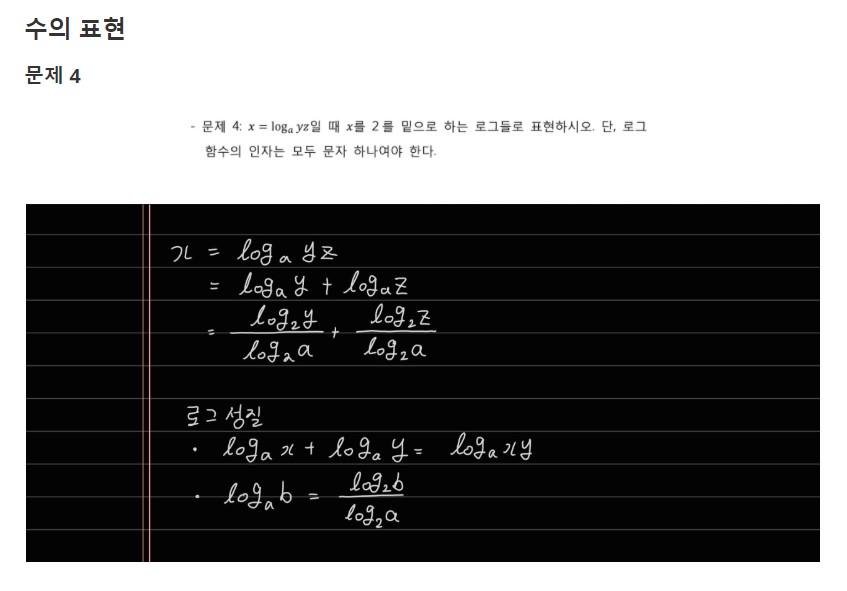 수의 표현
문제 4
- 문제 4: x = logₐ yz일 때 x를 2를 밑으로 하는 로그들로 표현하시오. 단, 로그
함수의 인자는 모두 문자 하나여야 한다.
x = logₐ yz
= logₐ y + logₐ z
= log₂y / log₂a + log₂z / log₂a
로그 성질
· logₐ x + logₐ y = logₐ xy
· logₐ b = log₂b / log₂a